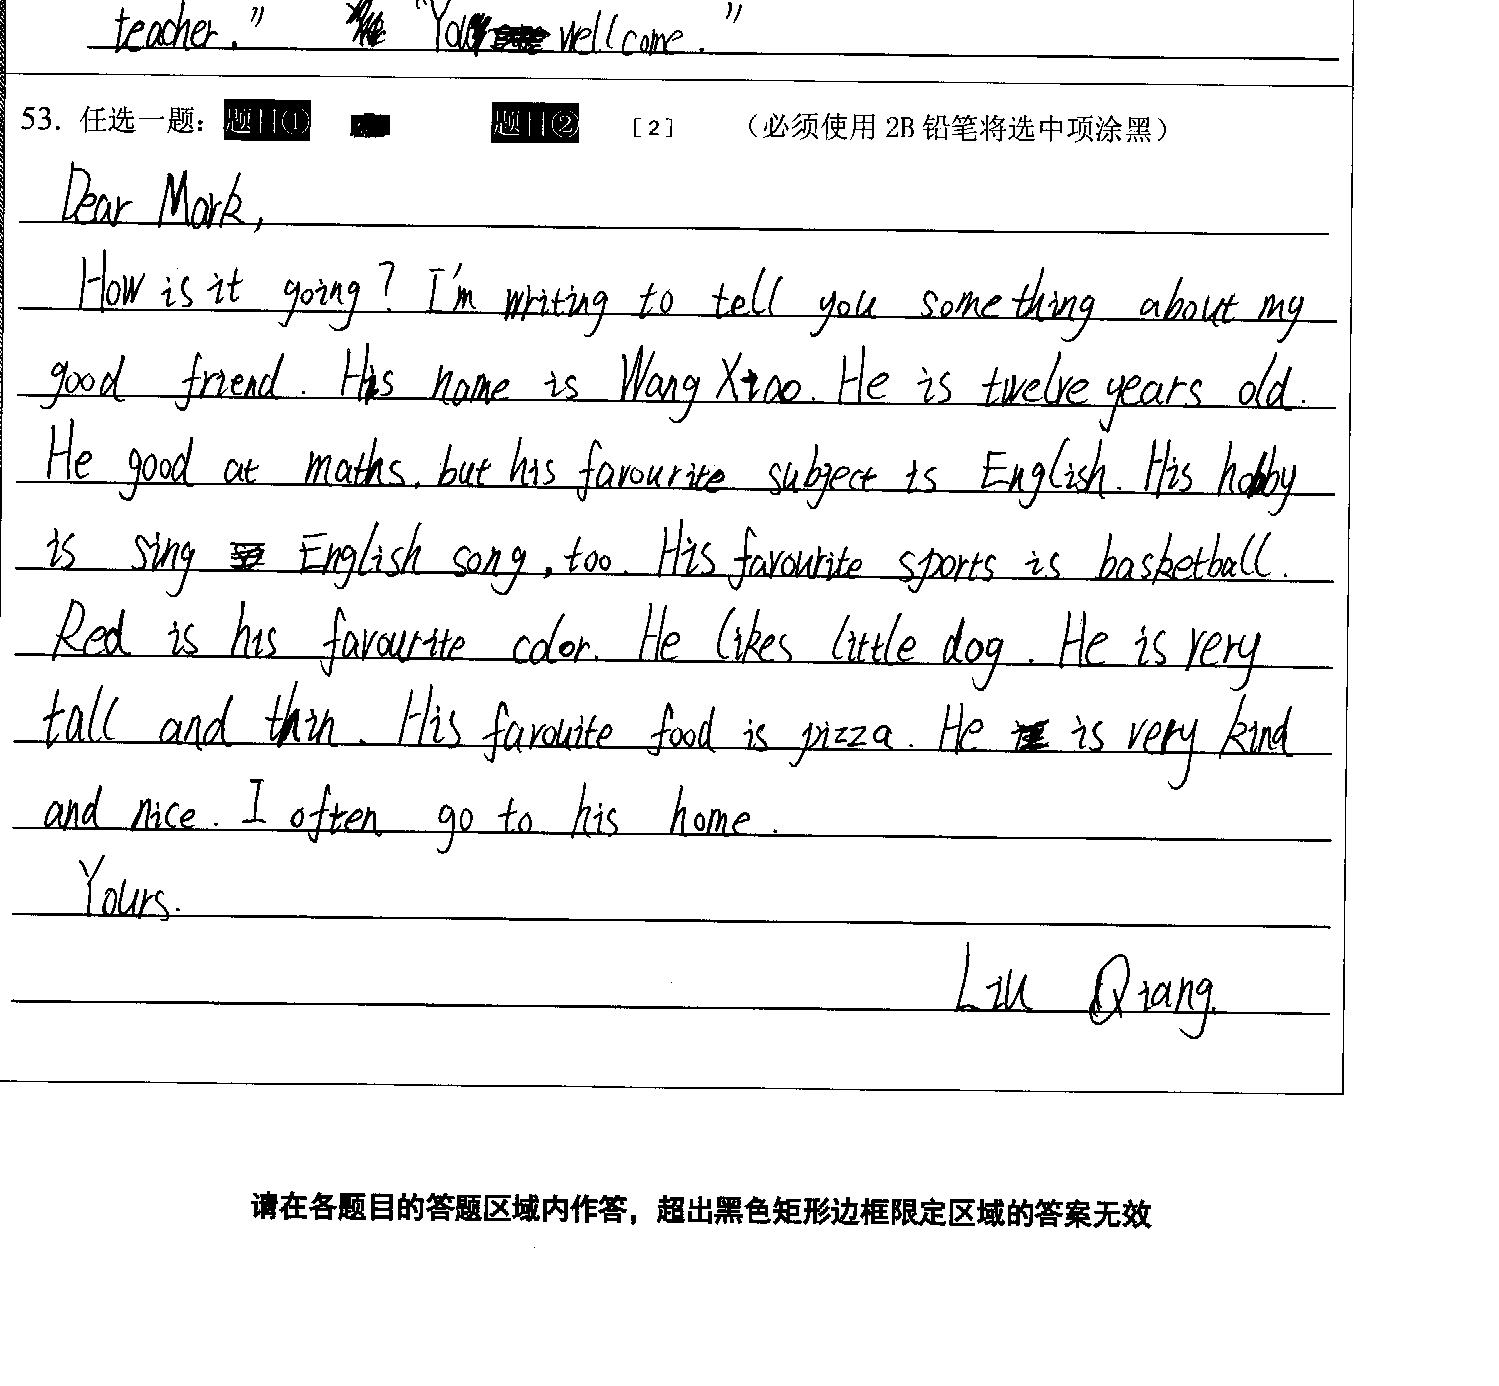 teacher." "You wellcome."
53. 任选一题: 题目① 题目② [2] (必须使用 2B 铅笔将选中项涂黑)
Dear Mark,
How is it going? I'm writing to tell you something about my
good friend. His name is Wang Xiao. He is twelve years old.
He good at maths, but his favourite subject is English. His hobby
is sing English song, too. His favourite sports is basketball.
Red is his favourite color. He likes little dog. He is very
tall and thin. His favouite food is pizza. He is very kind
and nice. I often go to his home.
Yours.
Liu Qiang.
请在各题目的答题区域内作答，超出黑色矩形边框限定区域的答案无效